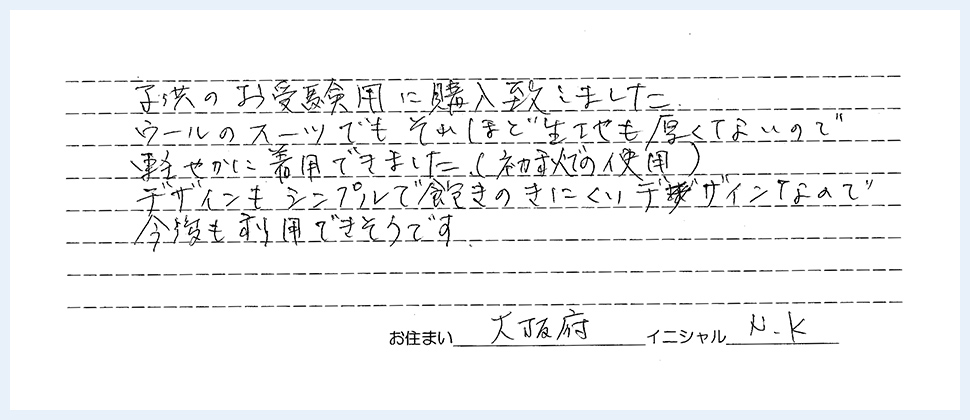 子供のお受験用に購入致しました
ウールのスーツでも それほど生地も厚くないので
軽やかに着用できました。(初秋での使用)
デザインもシンプルで飽きのきにくいデザインなので
今後も利用できそうです。
お住まい 大阪府 イニシャル N.K